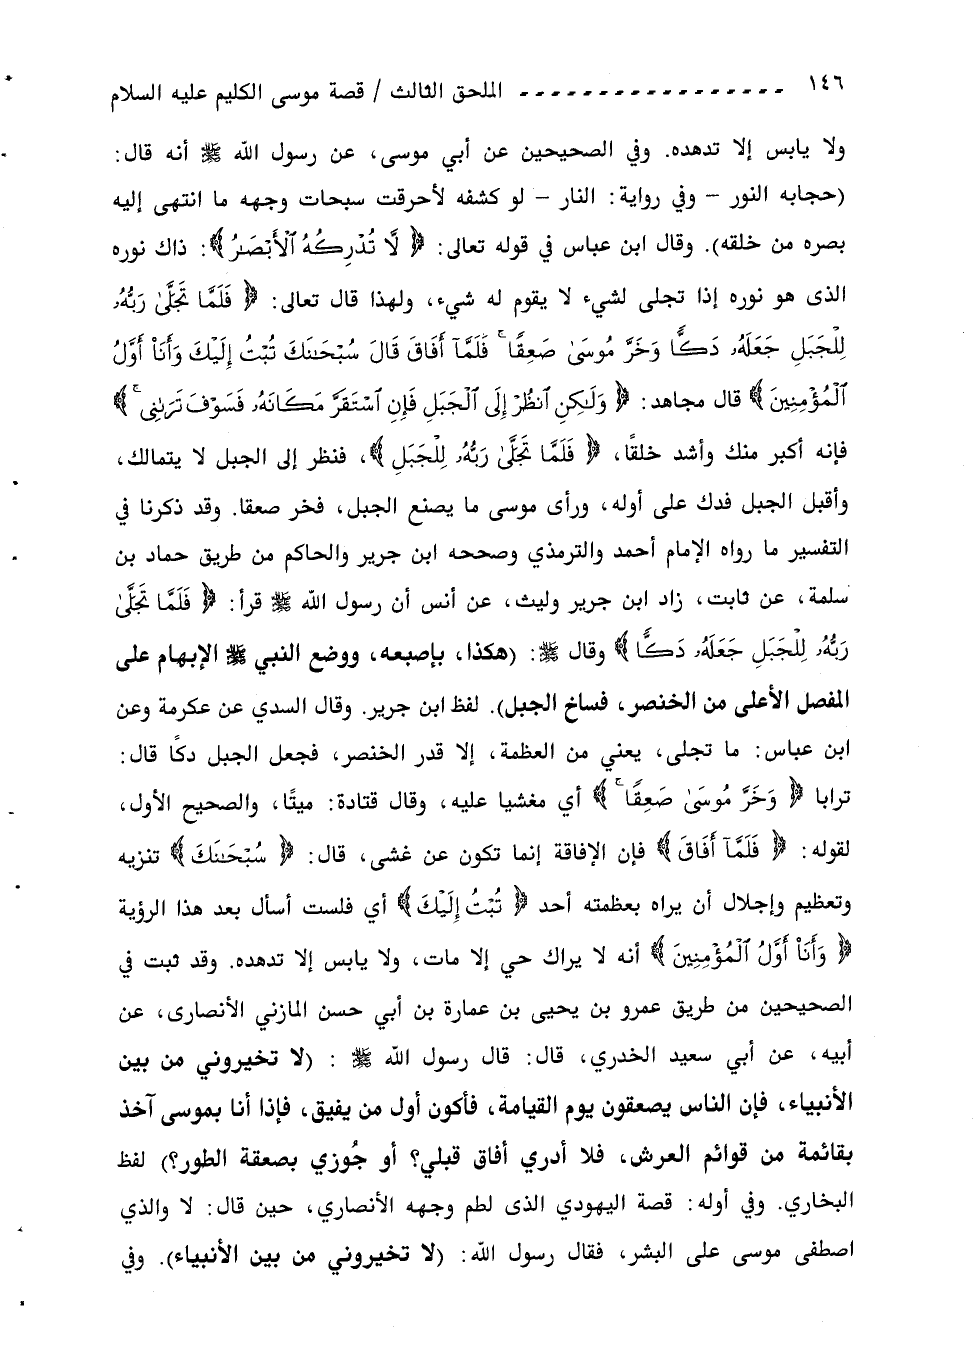 ١٤٦ ----------------- الملحق الثالث / قصة موسى الكليم عليه السلام
ولا يابس إلا تدهده. وفي الصحيحين عن أبي موسى، عن رسول الله ﷺ أنه قال:
(حجابه النور – وفي رواية: النار – لو كشفه لأحرقت سبحات وجهه ما انتهى إليه
بصره من خلقه). وقال ابن عباس في قوله تعالى: ﴿ لَّا تُدْرِكُهُ ٱلْأَبْصَـٰرُ ﴾: ذاك نوره
الذى هو نوره إذا تجلى لشيء لا يقوم له شيء، ولهذا قال تعالى: ﴿ فَلَمَّا تَجَلَّىٰ رَبُّهُۥ
لِلْجَبَلِ جَعَلَهُۥ دَكًّا وَخَرَّ مُوسَىٰ صَعِقًا ۚ فَلَمَّآ أَفَاقَ قَالَ سُبْحَـٰنَكَ تُبْتُ إِلَيْكَ وَأَنَا۠ أَوَّلُ
ٱلْمُؤْمِنِينَ ﴾ قال مجاهد: ﴿ وَلَـٰكِنِ ٱنظُرْ إِلَى ٱلْجَبَلِ فَإِنِ ٱسْتَقَرَّ مَكَانَهُۥ فَسَوْفَ تَرَىٰنِى ۚ ﴾
فإنه أكبر منك وأشد خلقًا، ﴿ فَلَمَّا تَجَلَّىٰ رَبُّهُۥ لِلْجَبَلِ ﴾، فنظر إلى الجبل لا يتمالك،
وأقبل الجبل فدك على أوله، ورأى موسى ما يصنع الجبل، فخر صعقا. وقد ذكرنا في
التفسير ما رواه الإمام أحمد والترمذي وصححه ابن جرير والحاكم من طريق حماد بن
سلمة، عن ثابت، زاد ابن جرير وليث، عن أنس أن رسول الله ﷺ قرأ: ﴿ فَلَمَّا تَجَلَّىٰ
رَبُّهُۥ لِلْجَبَلِ جَعَلَهُۥ دَكًّا ﴾ وقال ﷺ: (هكذا، بإصبعه، ووضع النبي ﷺ الإبهام على
المفصل الأعلى من الخنصر، فساخ الجبل). لفظ ابن جرير. وقال السدي عن عكرمة وعن
ابن عباس: ما تجلى، يعني من العظمة، إلا قدر الخنصر، فجعل الجبل دكًا قال:
ترابا ﴿ وَخَرَّ مُوسَىٰ صَعِقًا ۚ ﴾ أي مغشيا عليه، وقال قتادة: ميتًا، والصحيح الأول،
لقوله: ﴿ فَلَمَّآ أَفَاقَ ﴾ فإن الإفاقة إنما تكون عن غشى، قال: ﴿ سُبْحَـٰنَكَ ﴾ تنزيه
وتعظيم وإجلال أن يراه بعظمته أحد ﴿ تُبْتُ إِلَيْكَ ﴾ أي فلست أسأل بعد هذا الرؤية
﴿ وَأَنَا۠ أَوَّلُ ٱلْمُؤْمِنِينَ ﴾ أنه لا يراك حي إلا مات، ولا يابس إلا تدهده. وقد ثبت في
الصحيحين من طريق عمرو بن يحيى بن عمارة بن أبي حسن المازني الأنصارى، عن
أبيه، عن أبي سعيد الخدري، قال: قال رسول الله ﷺ : (لا تخيروني من بين
الأنبياء، فإن الناس يصعقون يوم القيامة، فأكون أول من يفيق، فإذا أنا بموسى آخذ
بقائمة من قوائم العرش، فلا أدري أفاق قبلي؟ أو جُوزي بصعقة الطور؟) لفظ
البخاري. وفي أوله: قصة اليهودي الذى لطم وجهه الأنصاري، حين قال: لا والذي
اصطفى موسى على البشر، فقال رسول الله: (لا تخيروني من بين الأنبياء). وفي